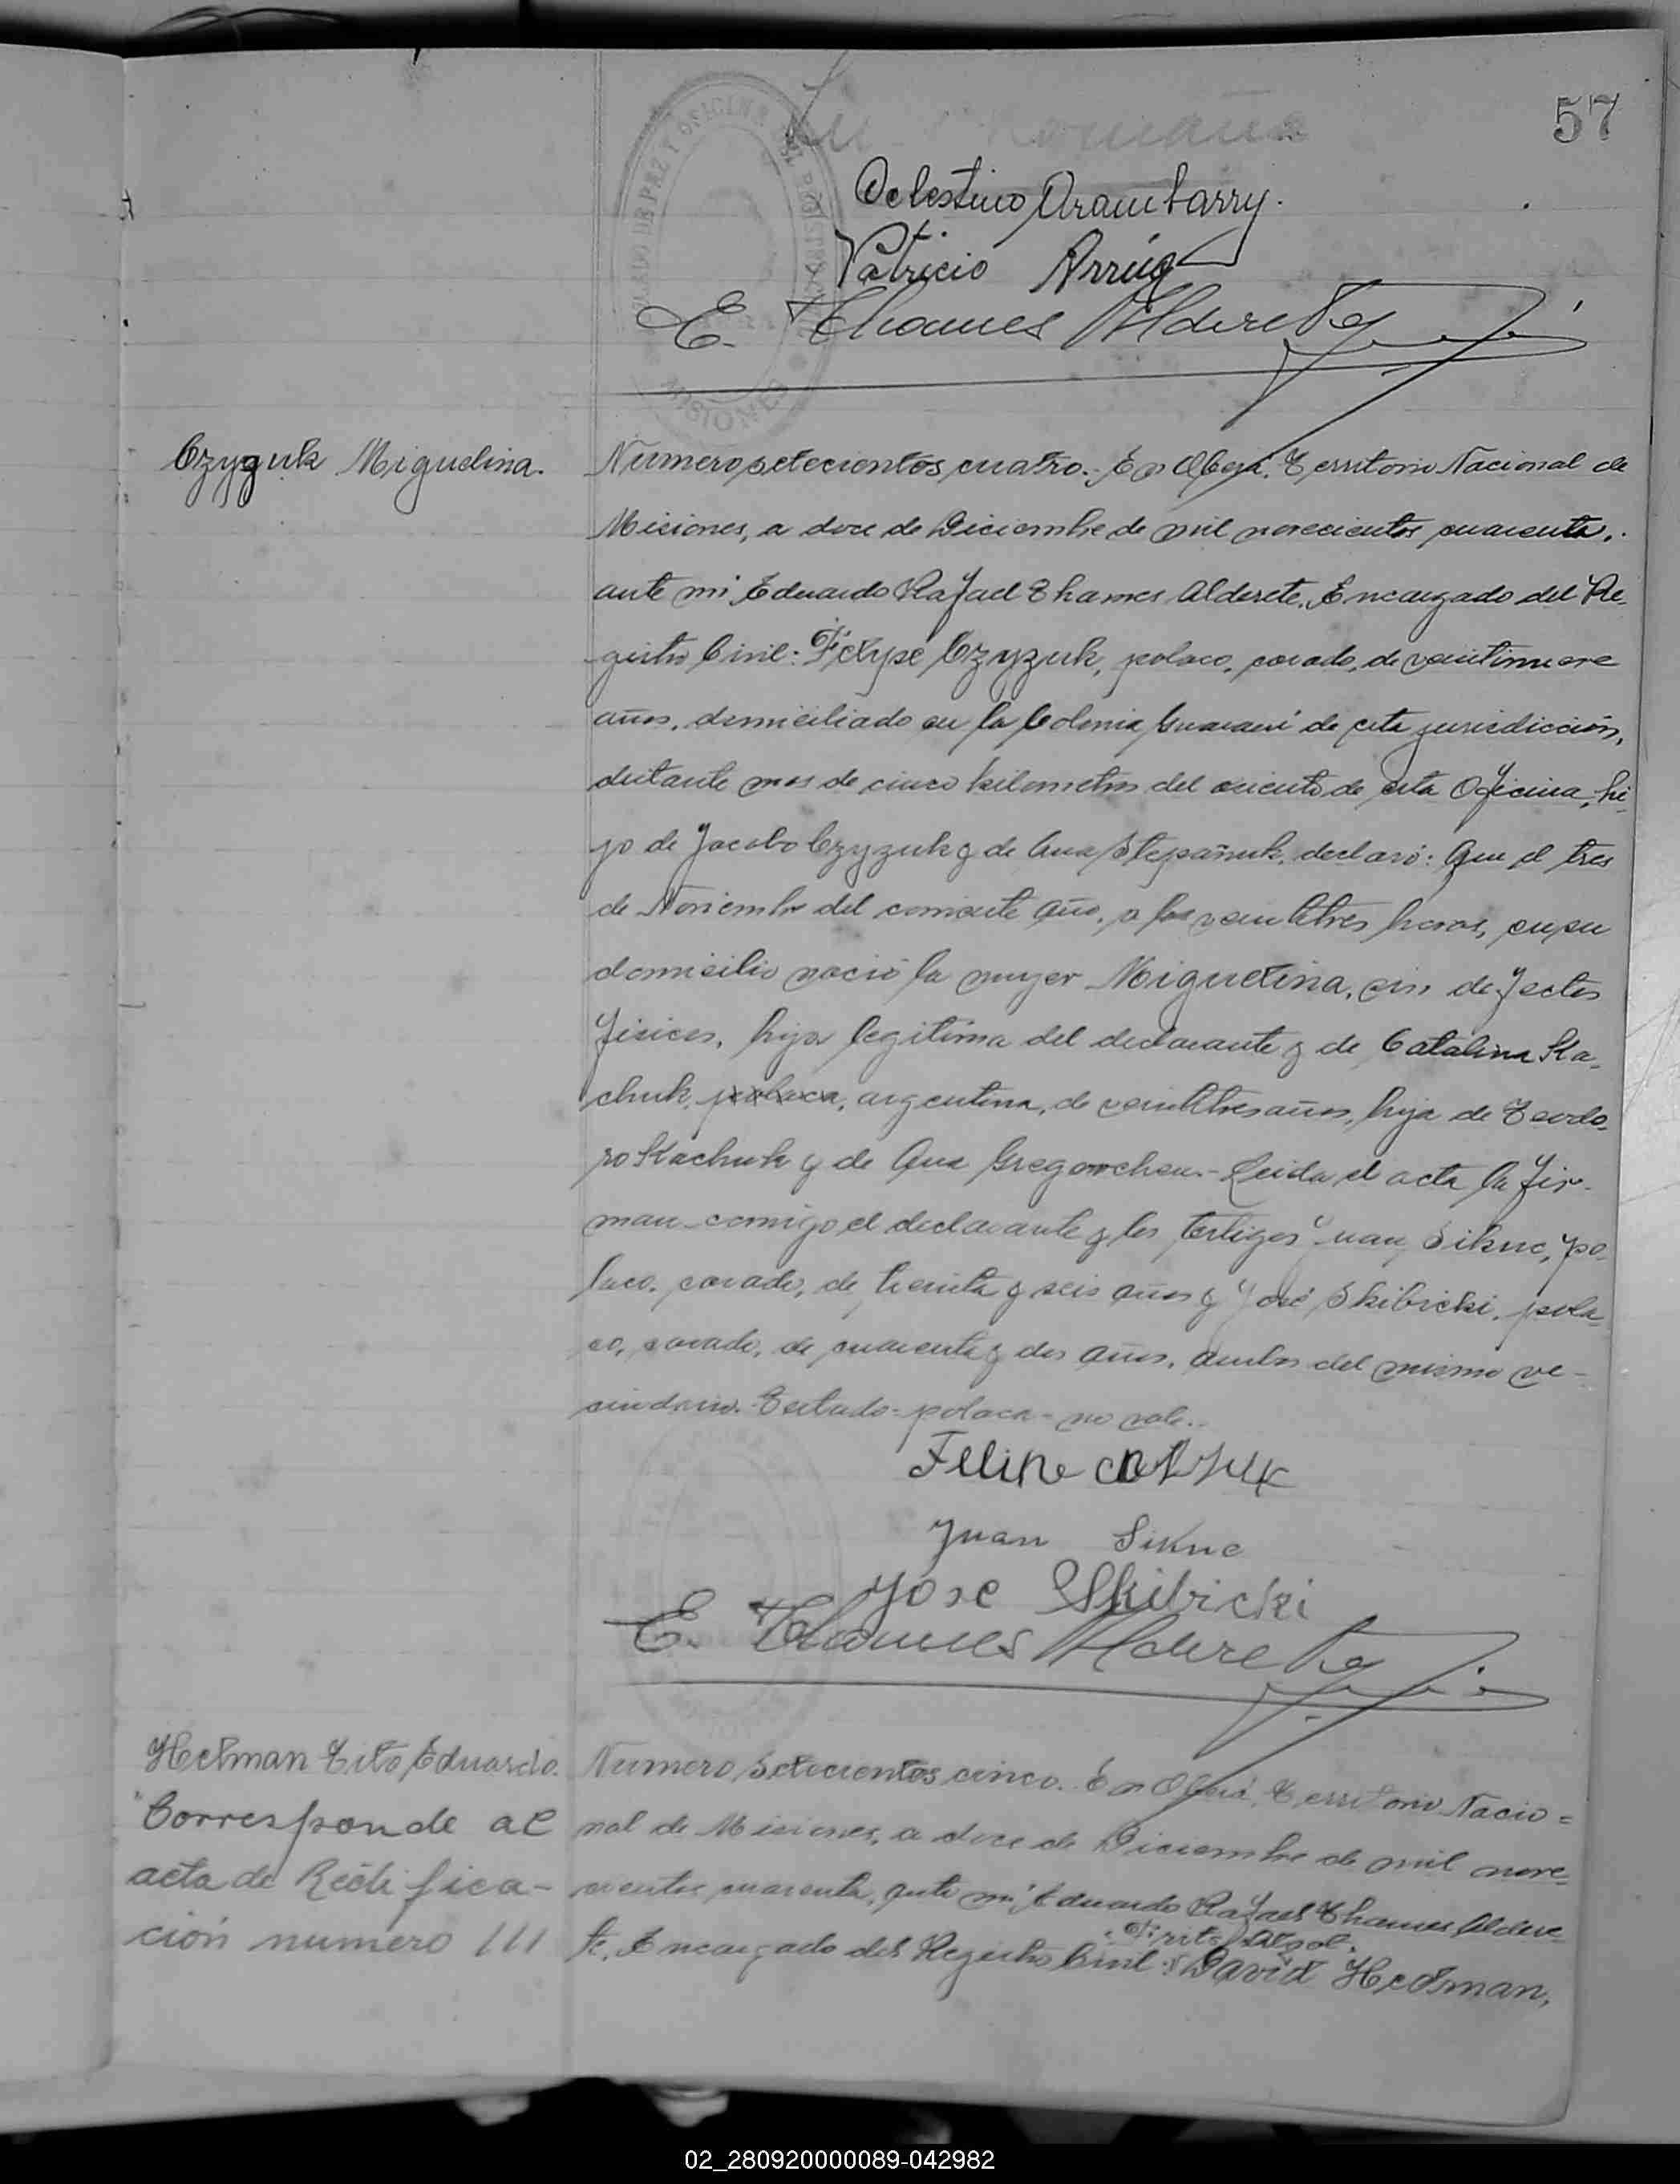 57
JUZGADO DE PAZ Y OFICINA DEL REGISTRO CIVIL
MISIONES
Celestino Arambarry.
Patricio Arrúa
E. Thames Alderete
Czyzuk Miguelina.
Numero setecientos cuatro.- En Oberá. Territorio Nacional de
Misiones, a doce de Diciembre de mil novecientos cuarenta,
ante mi Eduardo Rafael Thames Alderete, Encargado del Re-
gistro Civil: Felipe Czyzuk, polaco, casado, de veintinueve
años, domiciliado en la Colonia Guaraní de esta jurisdicción,
distante mas de cinco kilometros del asiento de esta Oficina, hi-
jo de Jacobo Czyzuk y de Ana Stepañuk, declaró: Que el tres
de Noviembre del corriente año, a las veintitres horas, en su
domicilio nació la mujer Miguelina, sin defectos
fisicos, hija legitima del declarante y de Catalina Ka-
chuk, polaca, argentina, de veintitres años, hija de Teodo-
ro Kachuk y de Ana Gregorchen.- Leida el acta la fir-
man comigo el declarante y los testigos Juan Sikuc, po-
laco, casado, de treinta y seis años y José Skibicki, pola-
co, casado, de cuarenta y dos años, ambos del mismo ve-
cindario. Testado- polaca- no vale.-
Felipe
Juan Sikuc
Jose Skibicki
E. Thames Alderete
Hetman Tito Eduardo.
Corresponde al
acta de Rectifica-
ción numero 111
Numero setecientos cinco. En Oberá, Territorio Nacio=
nal de Misiones, a doce de Diciembre de mil nove-
cientos cuarenta, ante mi Eduardo Rafael Thames Aldere-
te, Encargado del Registro Civil: David Hetman,